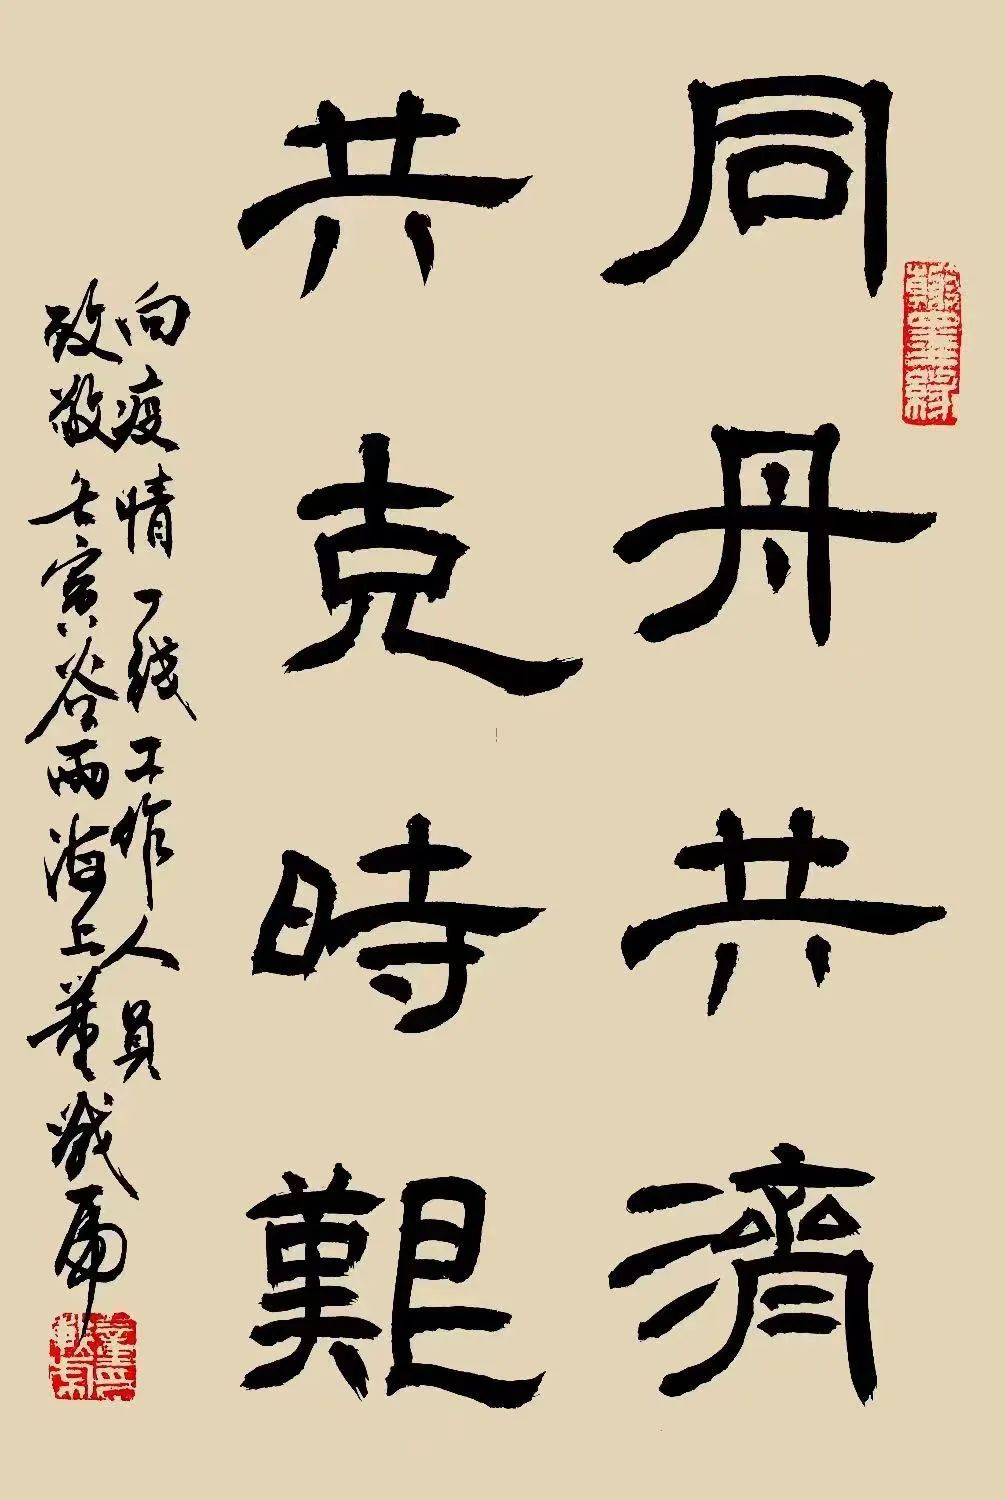 同舟共濟
共克時艱
向疫情一綫工作人員
致敬壬寅谷雨海上董
翰墨緣